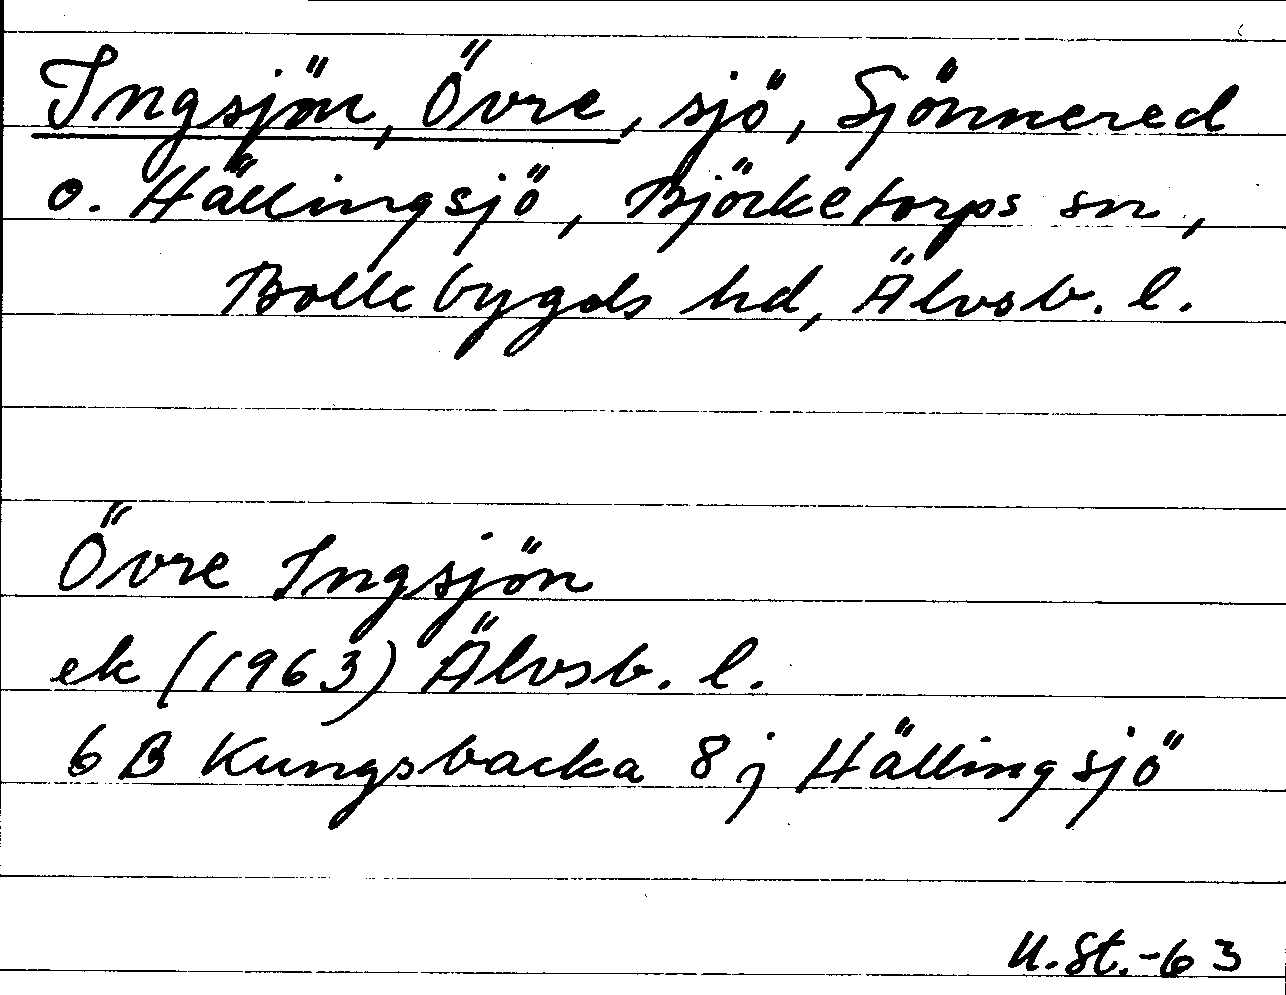 Ingsjön, Övre, sjö, Sjönnered
o. Hällingsjö, Björketorps sn,
Bollebygds hd, Älvsb. l.
Övre Ingsjön
ek (1963) Älvsb. l.
6 B Kungsbacka 8 j Hällingsjö
U.St.-63